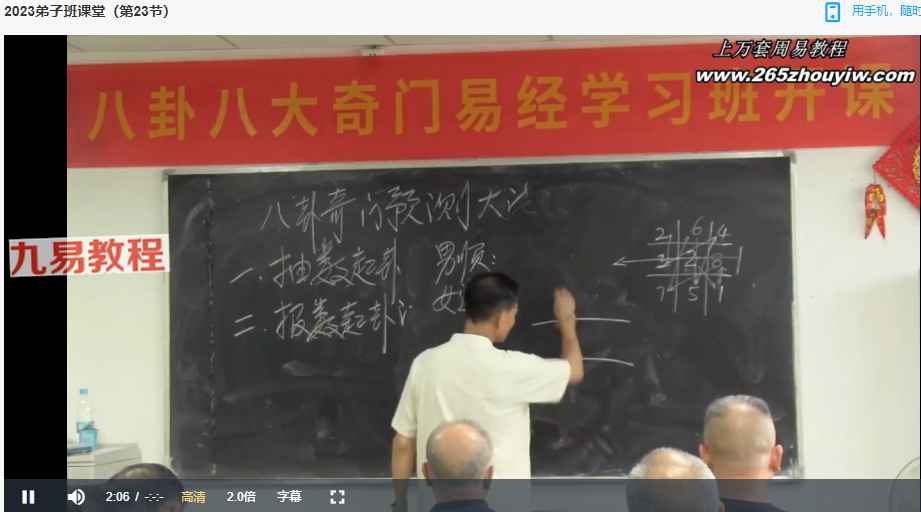 2023弟子班课堂（第23节）
用手机，随时
上万套周易教程
www.265zhouyiw.com
八卦八大奇门易经学习班开课
九易教程
八卦奇门预测大法
一.抽数起卦
男顺:
二.报数起卦
女
2 6 4
7 5 1
2:06 / -:-:-
高清
2.0倍
字幕